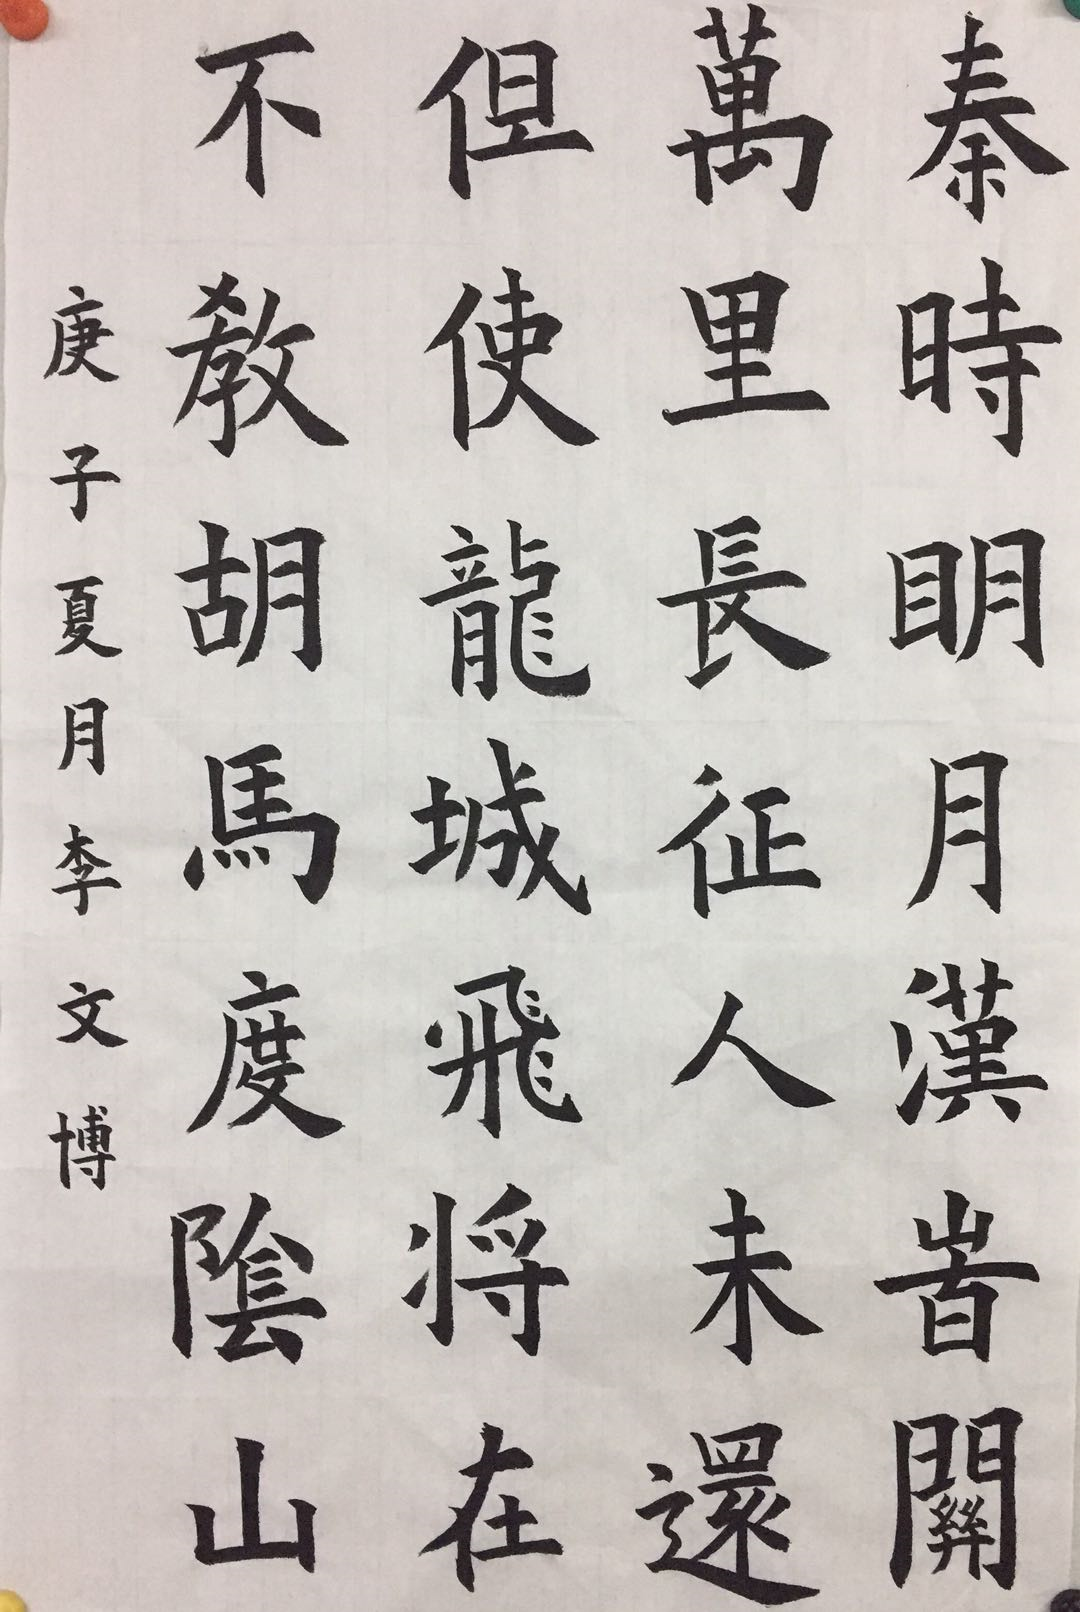 秦時明月漢旹關
萬里長征人未還
但使龍城飛将在
不教胡馬度陰山
庚子夏月李文博